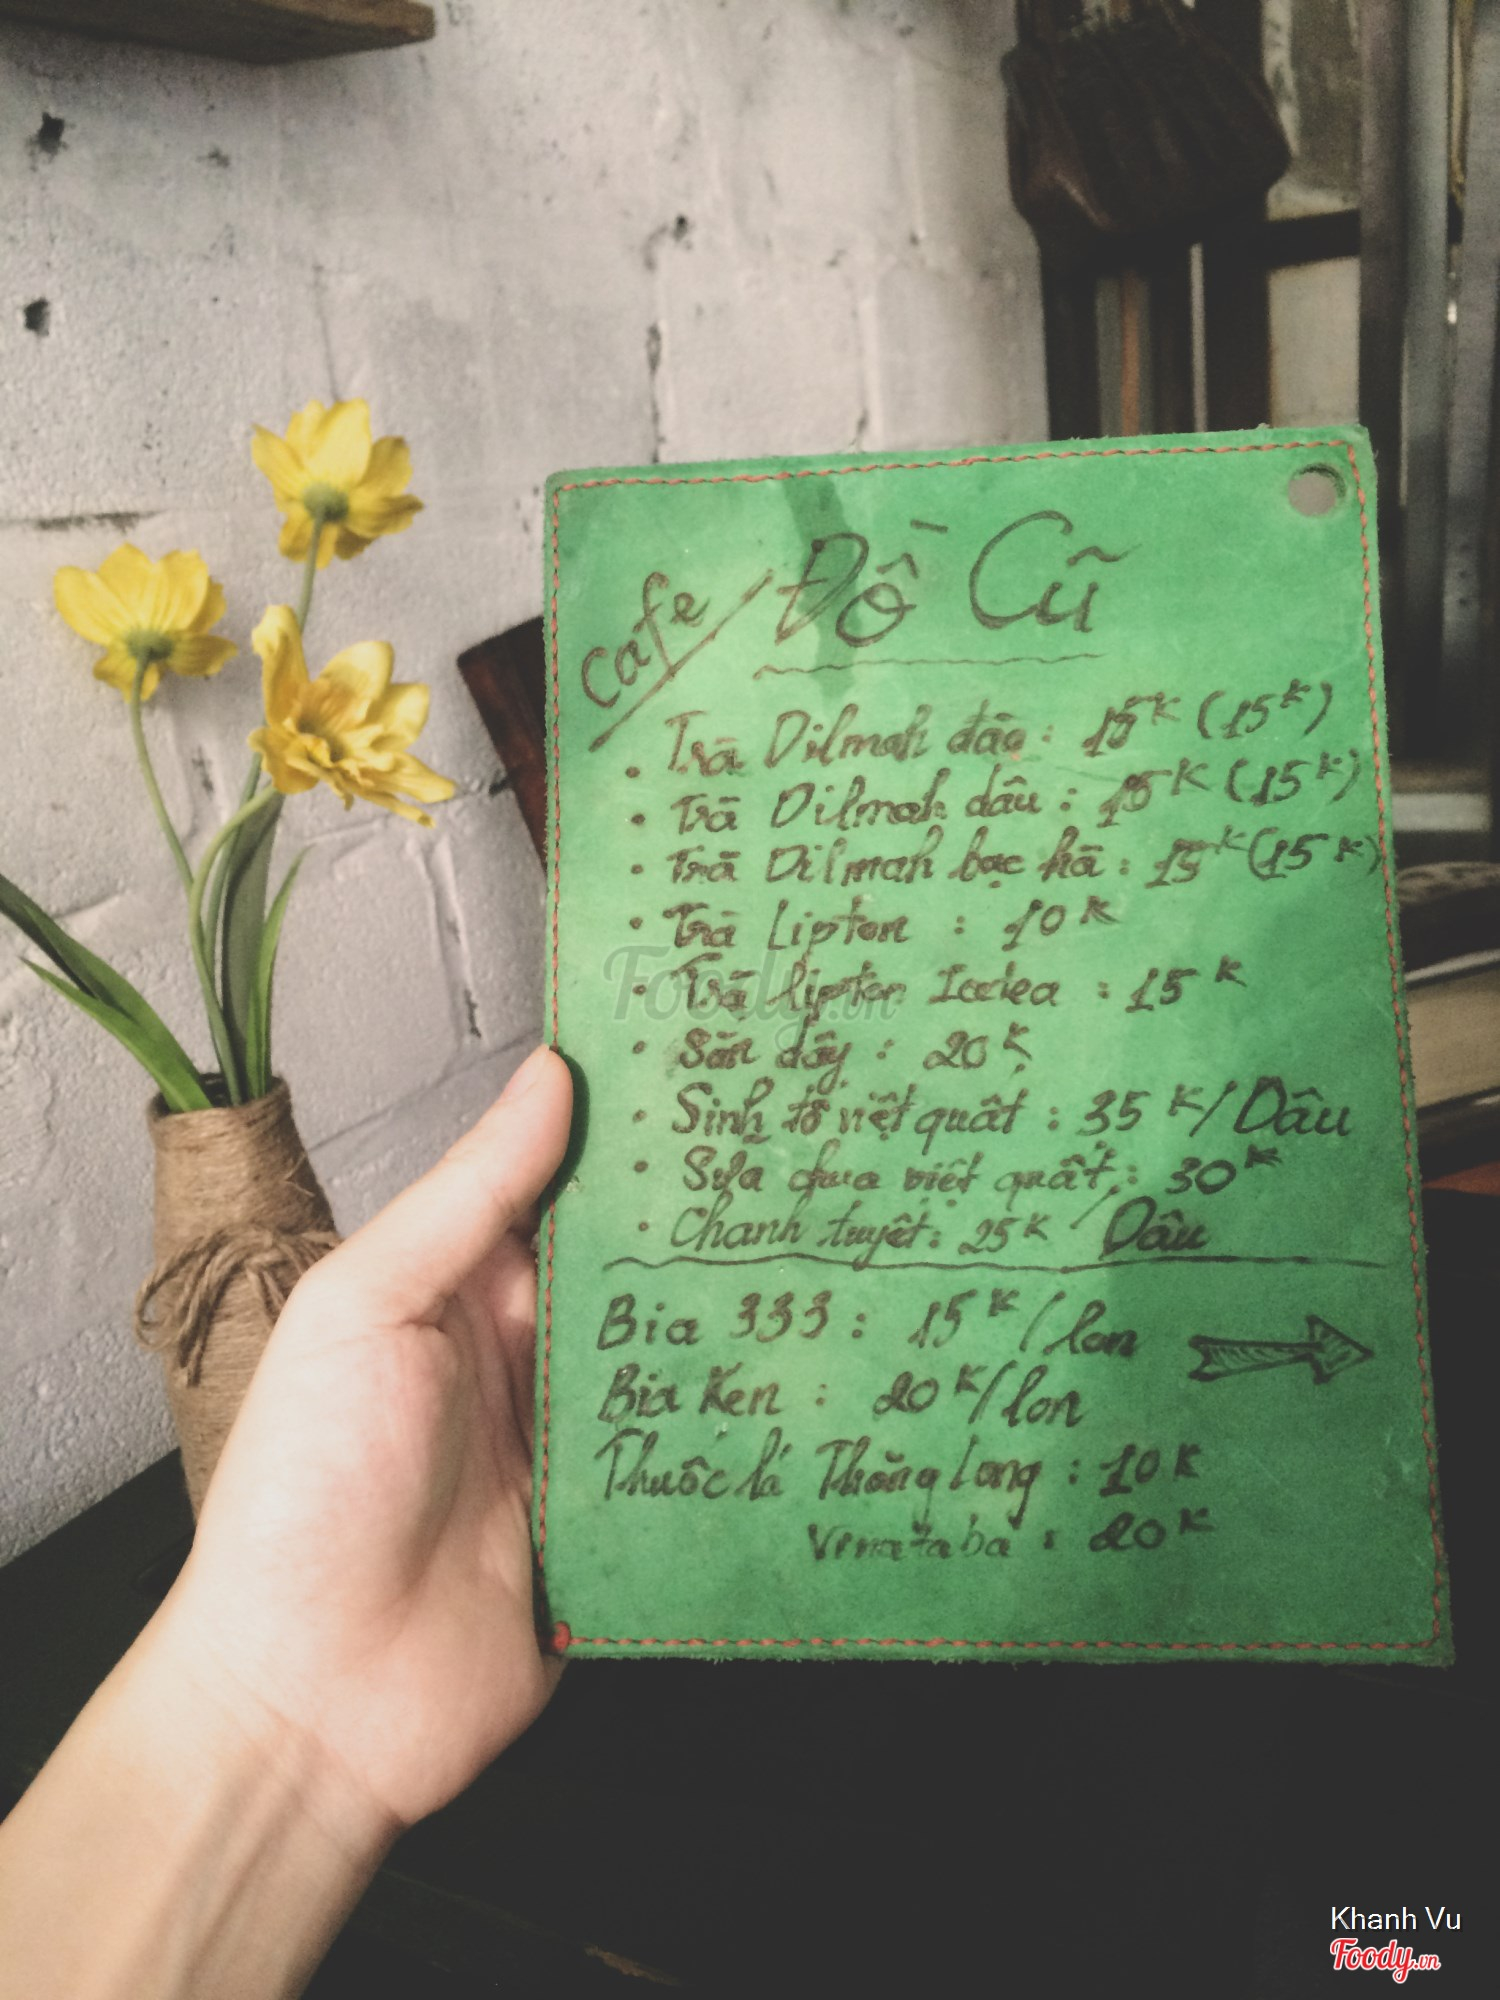 Cafe Đồ Cũ
• Trà Dilmah đào : 15K (15K)
• Trà Dilmah dâu : 15K (15K)
• Trà Dilmah bạc hà : 15K (15K)
• Trà Lipton : 10K
• Trà lipton Icetea : 15K
• Sắn dây : 20K
• Sinh tố việt quất : 35K/Dâu
• Sữa chua việt quất : 30K
• Chanh tuyết : 25K / Dâu
Bia 333 : 15K/lon
Bia Ken : 20K/lon
Thuốc lá Thăng Long : 10K
Vinataba : 20K
Foody.vn
Khanh Vu
Foody.vn